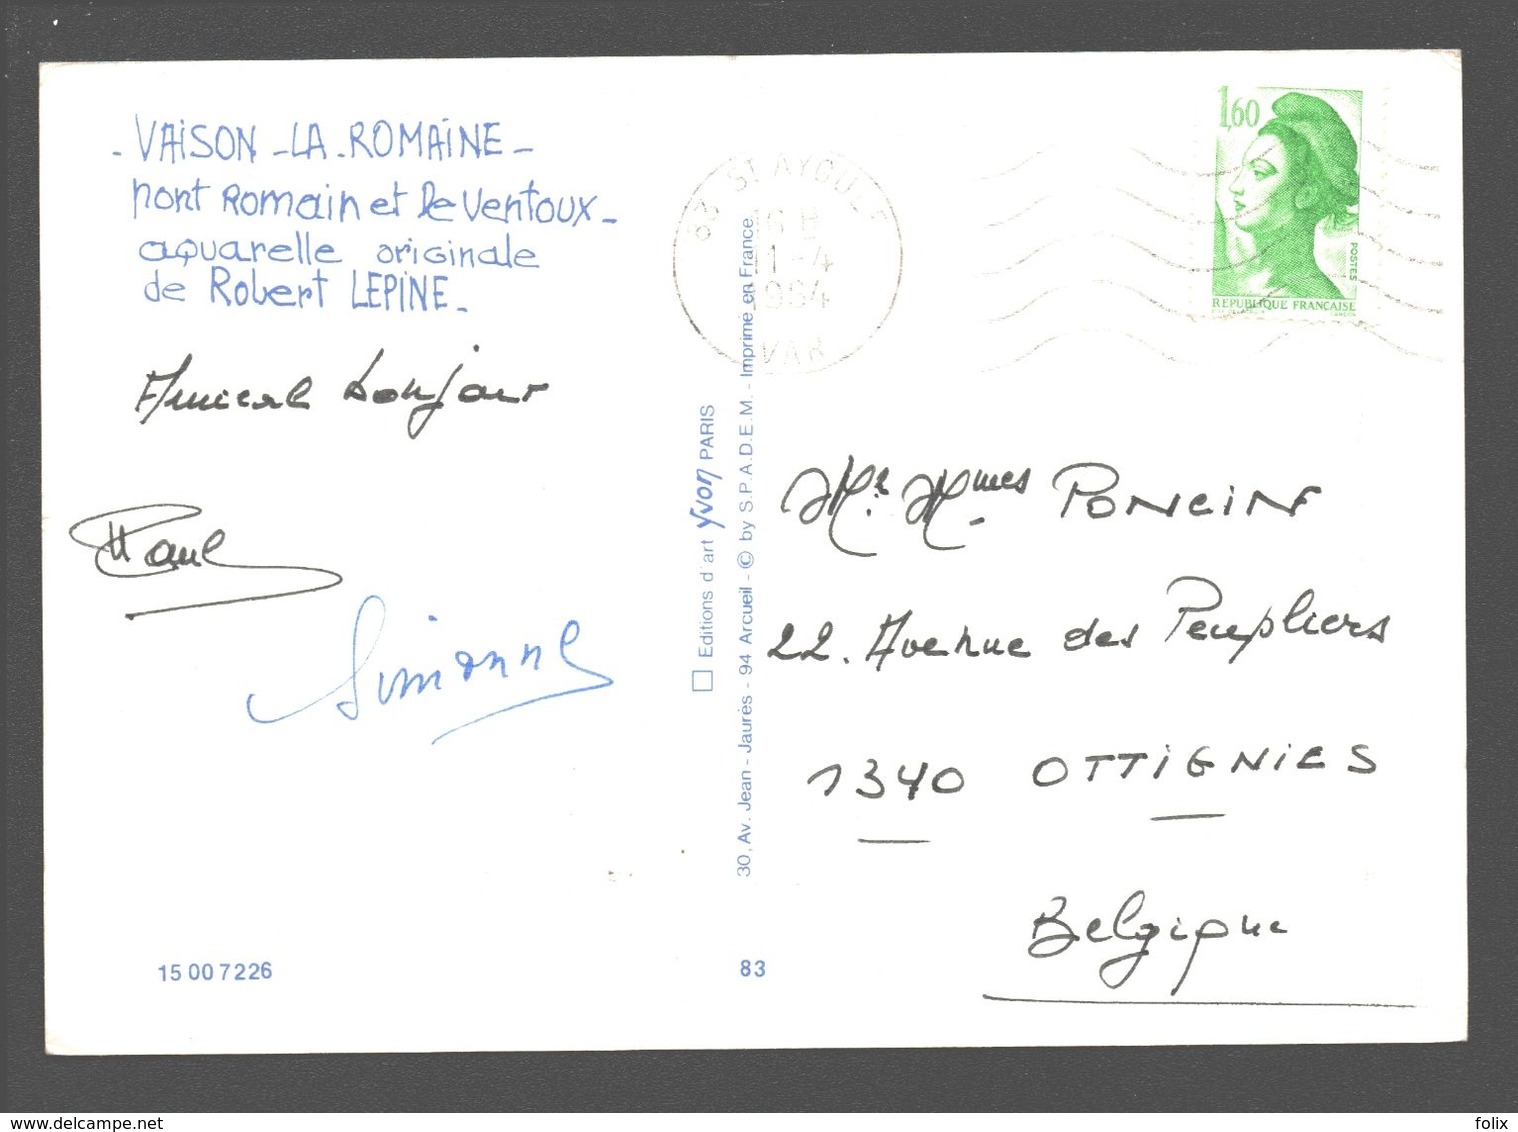 - VAISON - LA - ROMAINE -
pont Romain et le Ventoux -
aquarelle originale
de Robert LEPINE -
Amical bonjour
Paul
Simonne
15 00 7226
Editions d'art yvon PARIS
30, Av. Jean - Jaurès - 94 Arcueil - © by S.P.A.D.E.M. - Imprimé en France
83
83 ST AYGULF
16 H
11 - 4
1984
VAR
1,60
POSTES
REPUBLIQUE FRANÇAISE
Mr. Mmes PONCIN
22. Avenue des Peupliers
1340 OTTIGNIES
Belgique
delcampe.net
folix